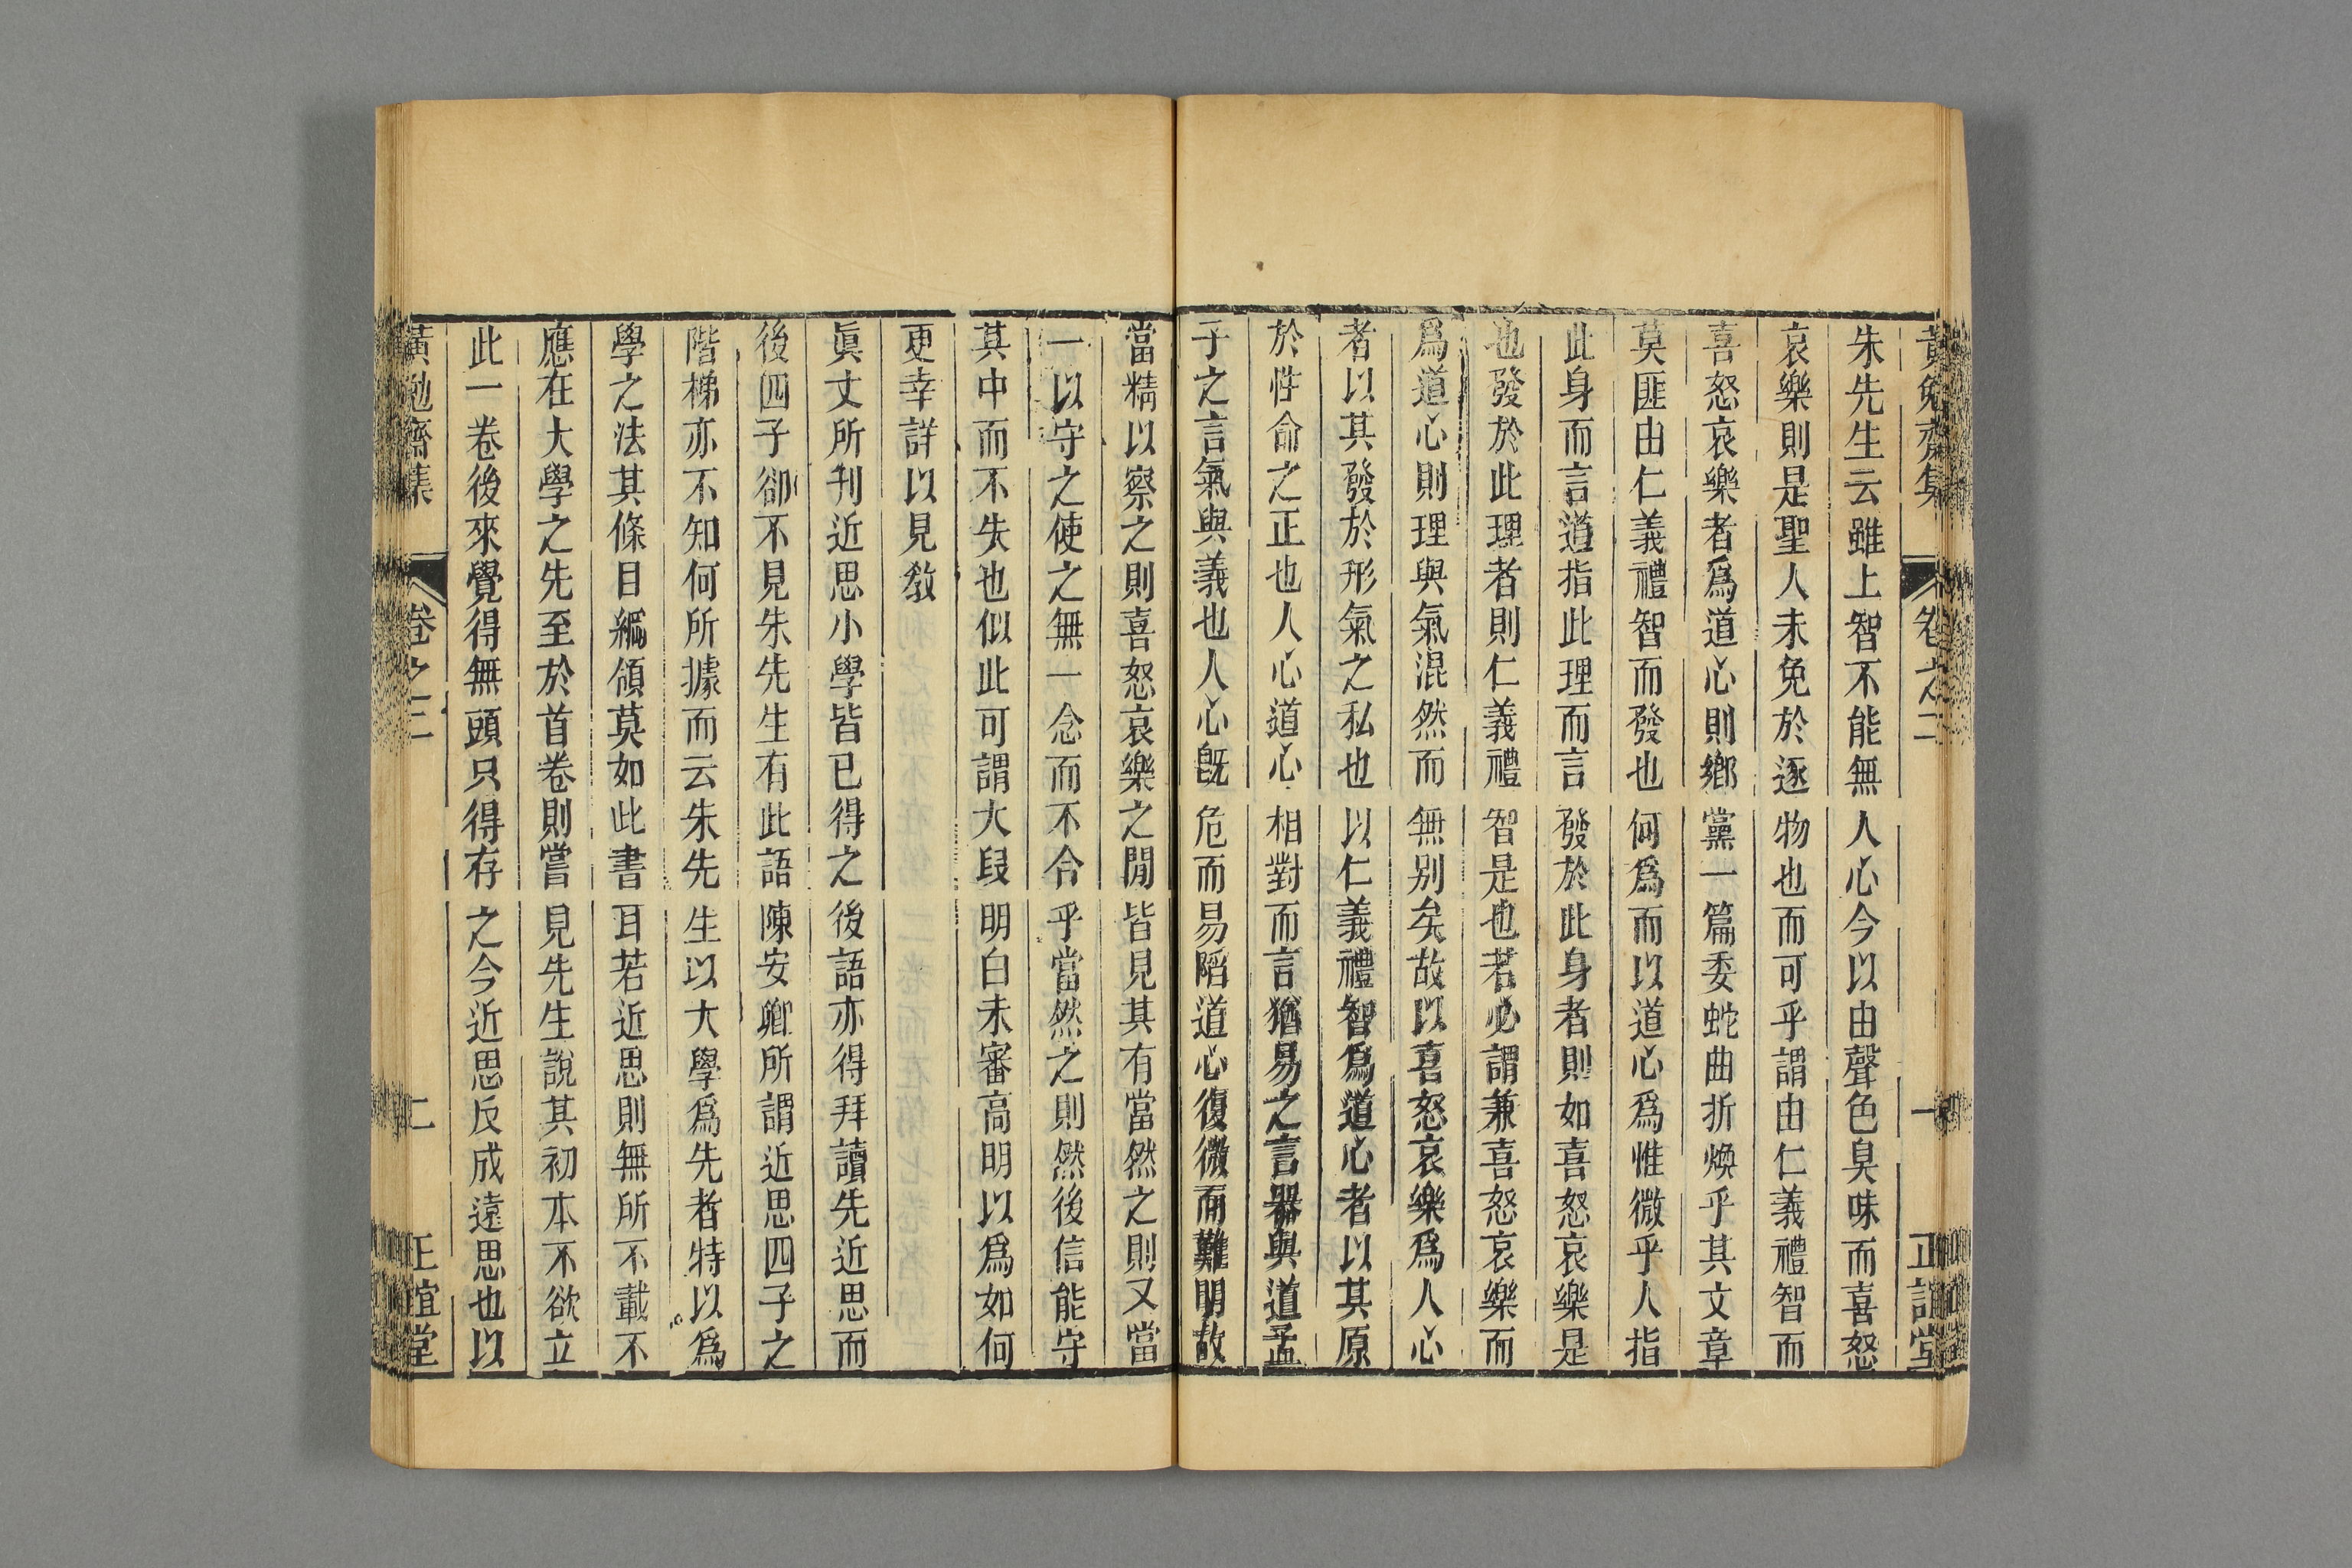 黃勉齋集 卷之二 一 正誼堂
朱先生云雖上智不能無人心今以由聲色臭味而喜怒
哀樂則是聖人未免於逐物也而可乎謂由仁義禮智而
喜怒哀樂者爲道心則鄉黨一篇委蛇曲折煥乎其文章
莫匪由仁義禮智而發也何爲而以道心爲惟微乎人指
此身而言道指此理而言發於此身者則如喜怒哀樂是
也發於此理者則仁義禮智是也若必謂兼喜怒哀樂而
爲道心則理與氣混然而無别矣故以喜怒哀樂爲人心
者以其發於形氣之私也以仁義禮智爲道心者以其原
於性命之正也人心道心相對而言猶易之言器與道孟
子之言氣與義也人心旣危而易陷道心復微而難明故
當精以察之則喜怒哀樂之閒皆見其有當然之則又當
一以守之使之無一念而不合乎當然之則然後信能守
其中而不失也似此可謂大段明白未審高明以爲如何
更幸詳以見敎
眞丈所刋近思小學皆已得之後語亦得拜讀先近思而
後四子卻不見朱先生有此語陳安卿所謂近思四子之
階梯亦不知何所據而云朱先生以大學爲先者特以爲
學之法其條目綱領莫如此書耳若近思則無所不載不
應在大學之先至於首卷則嘗見先生說其初本不欲立
此一卷後來覺得無頭只得存之今近思反成遠思也以
黃勉齋集 卷之二 二 正誼堂